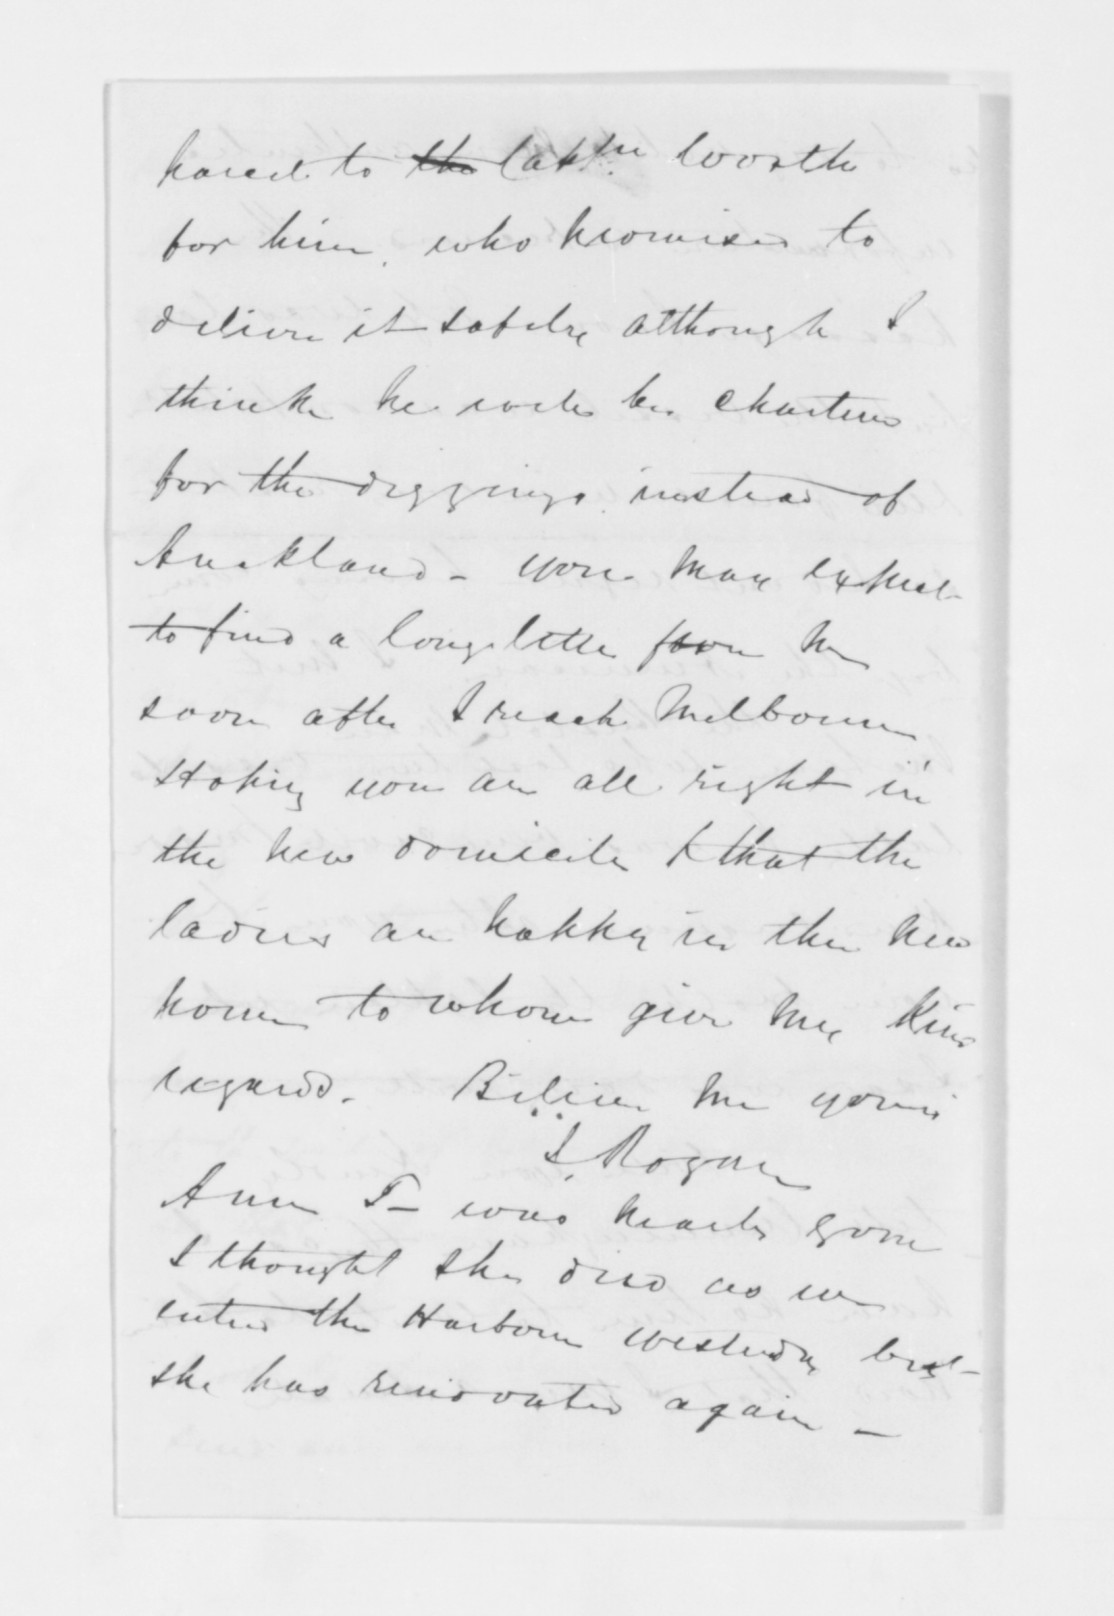 parcel to the Captn. Worth
for him, who promises to
deliver it safely although I
think he will be chartered
for the diggings instead of
Auckland - you may expect
to find a long letter from me
soon after I reach Melbourne
Hoping you are all right in
the new domicile & that the
ladies are happy in their new
home to whom give my kind
regards. Believe me yours
J. Rogan
Ann T- was nearly gone
I thought she died as we
entered the Harbour yesterday but
she has renovated again -